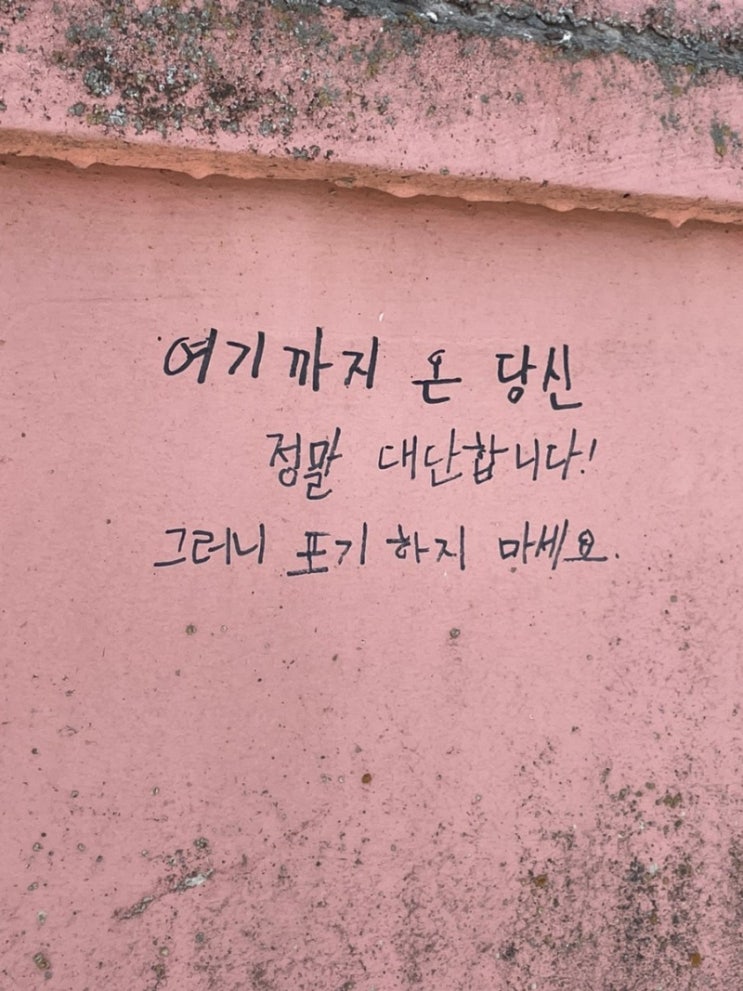 여기까지 온 당신
정말 대단합니다!
그러니 포기하지 마세요.